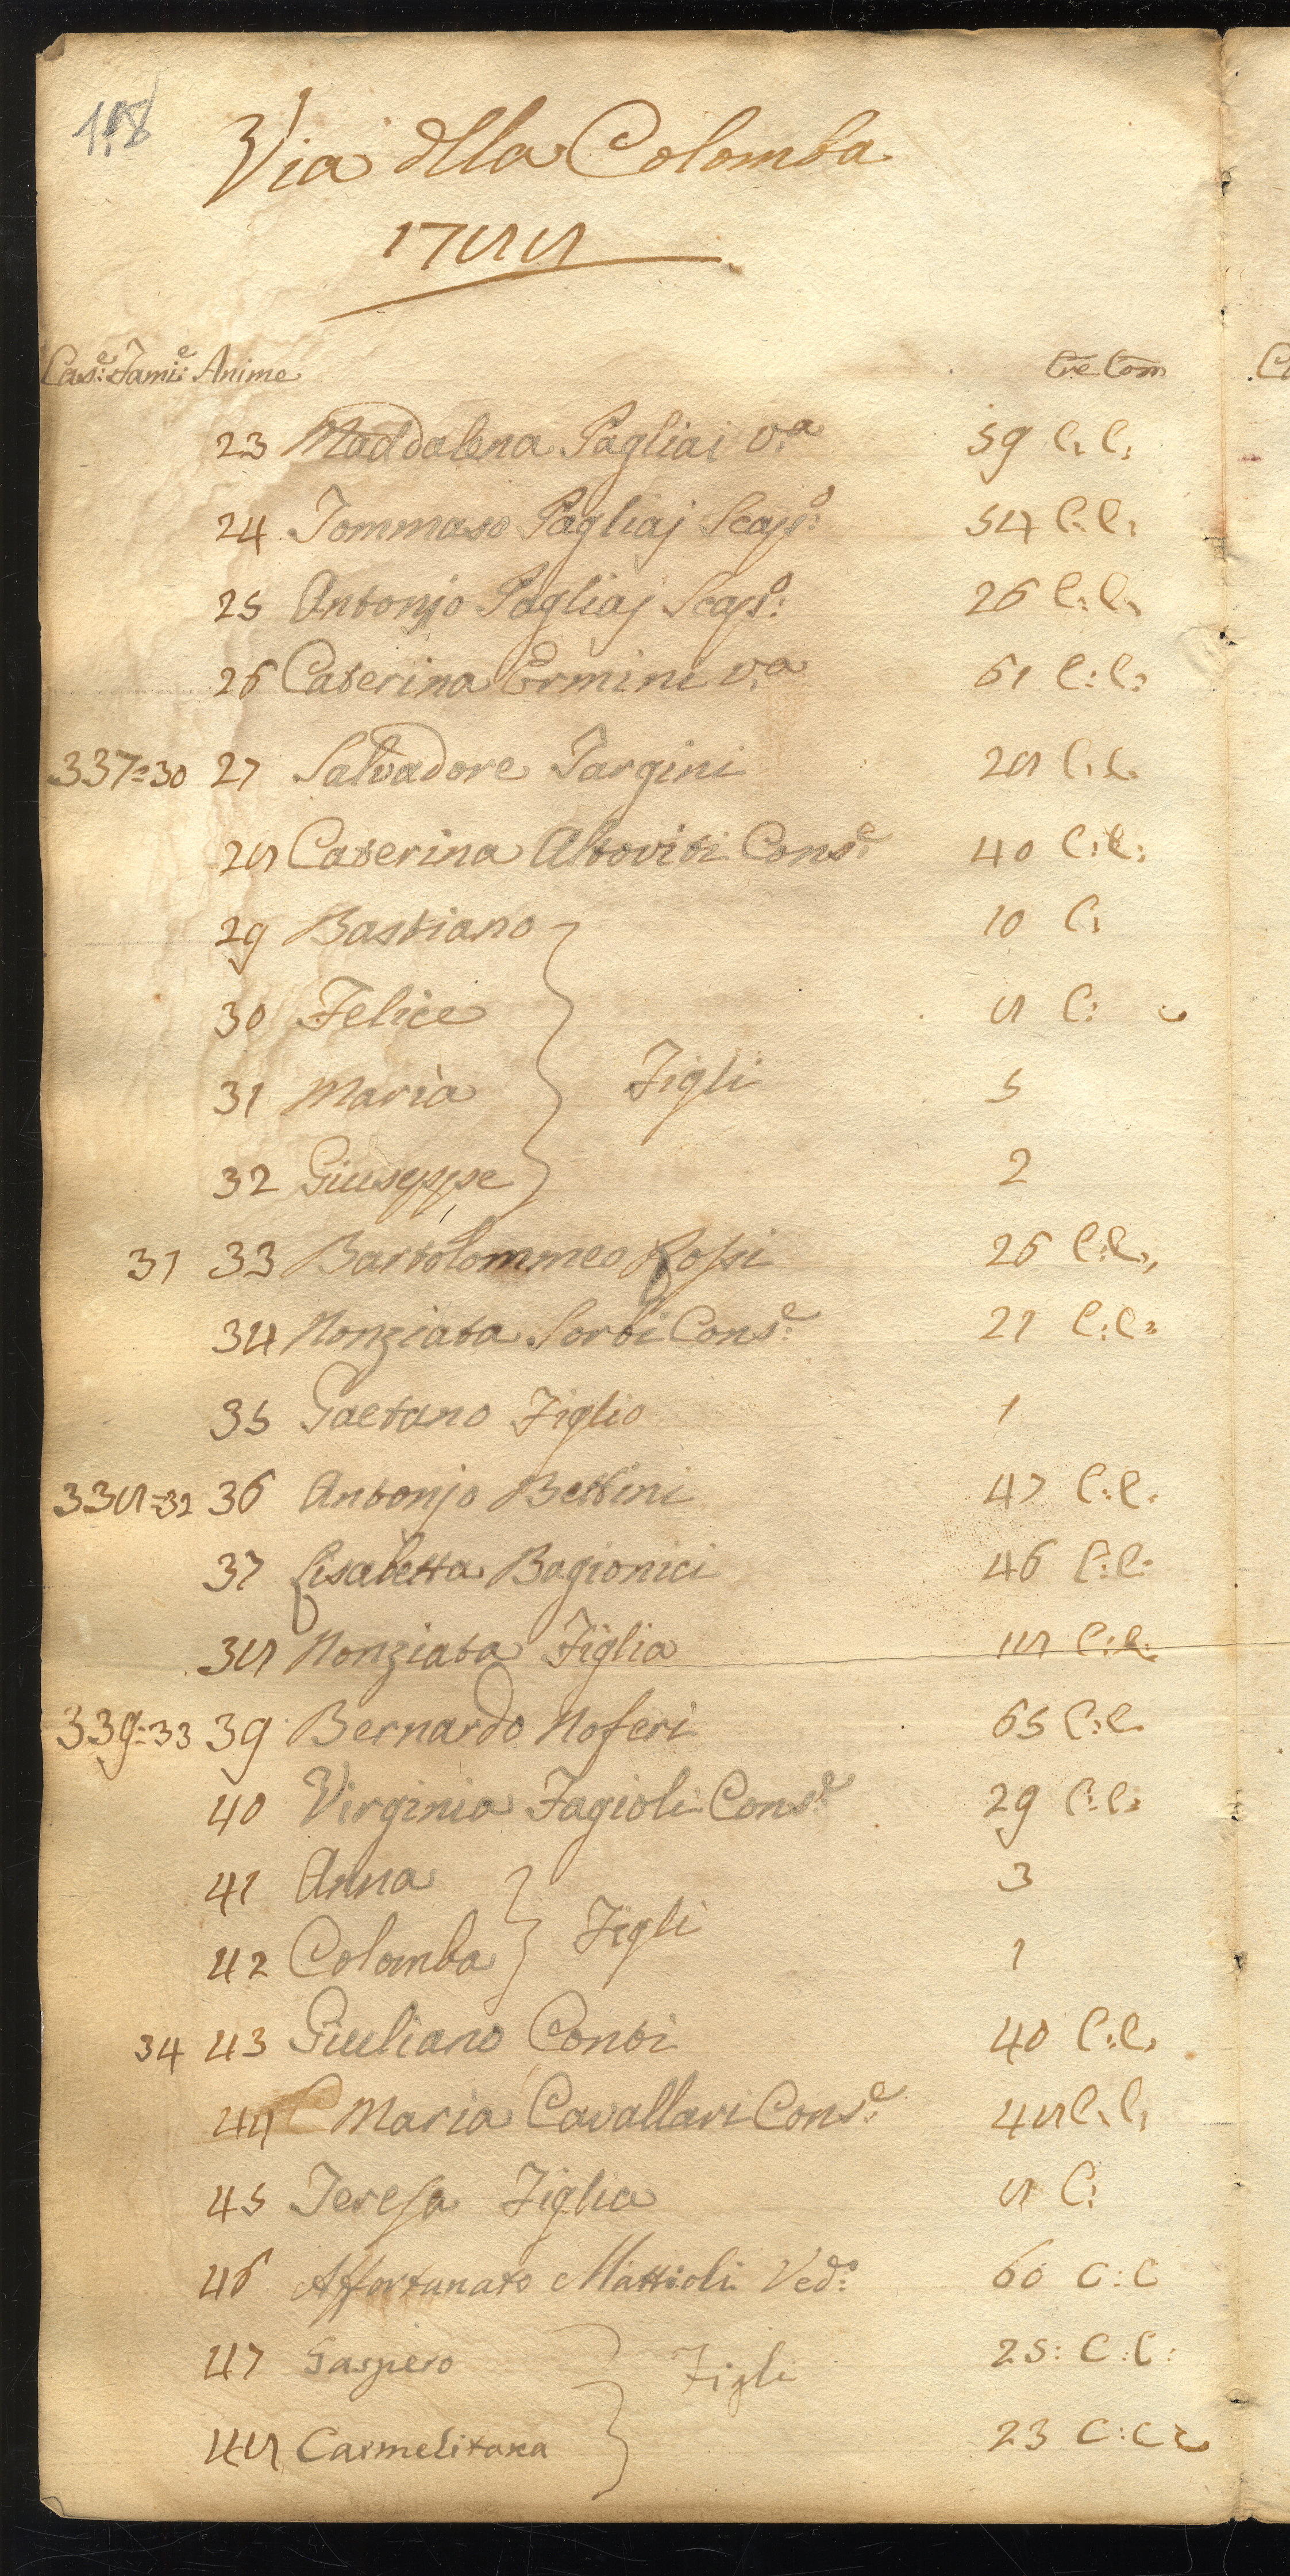 118
Via dlla Colomba
1788
Cas:e Fami:e Anime Cre Com
23 Maddalena Pagliai V.a 59 C. C.
24 Tommaso Pagliaj Scap:o 54 C: C:
25 Antonjo Pagliaj Scap:o 26 C: C:
26 Caterina Ermini V.a 61 C: C:
337=30 27 Salvadore Targini 28 C. C.
28 Caterina Altoviti Cons:e 40 C: C:
29 Bastiano 10 C:
30 Felice 8 C:
31 Maria Figli 5
32 Giuseppe 2
31 33 Bartolommeo Rossi 26 C: C:
34 Nonziata Sorbi Cons:e 21 C: C:
35 Gaetano Figlio 1
338=32 36 Antonjo Bettini 47 C: C:
37 Lisabetta Bagionici 46 C: C:
38 Nonziata Figlia 18 C: C:
339=33 39 Bernardo Noferi 65 C: C.
40 Virginia Fagioli Cons:e 29 C: C:
41 Anna 3
Figli
42 Colomba 1
34 43 Giuliano Conti 40 C: C.
44 Maria Cavallari Cons:e 48 C. C.
45 Teresa Figlia 8 C:
46 Affortunato Mattioli Ved:o 60 C: C
47 Gaspero Figli 25: C: C:
48 Carmelitana 23 C: C